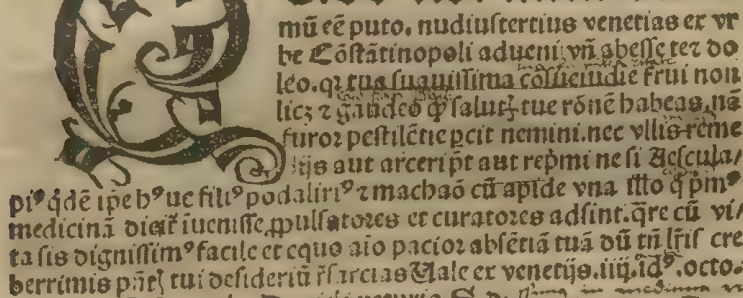 mū eē puto. nudiustertius venetias ex vr
be Cōstātinopoli adueni: vn̄ abesse te ⁊ do
leo. qꝛ tua suauissima cōsuetudīe frui non
licꝫ ⁊ gaudeo ꝙ salutꝭ tue rōnē habeas. nā
furor pestilētie pcit nemini. nec vllis reme
dijs aut arceri pt̄ aut rep̄mi ne si Aescula/
piꝰ qͥdē ip̄e hꝰ ue filiꝰ podaliriꝰ ⁊ machaō cū apide vna illo q̇ pͥmꝰ
medicinā dicit̄ iuenisse, ꝓpulsatores et curatores adsint. qͣre cū vi/
ta sis dignissimꝰ facile et equo aīo pacior absētiā tuā dū tn̄ lr̄is cre
berrimis p̄ntꝭ tui desideriū r̄sarcias Uale ex venetijs. iiij. idꝰ. octo.